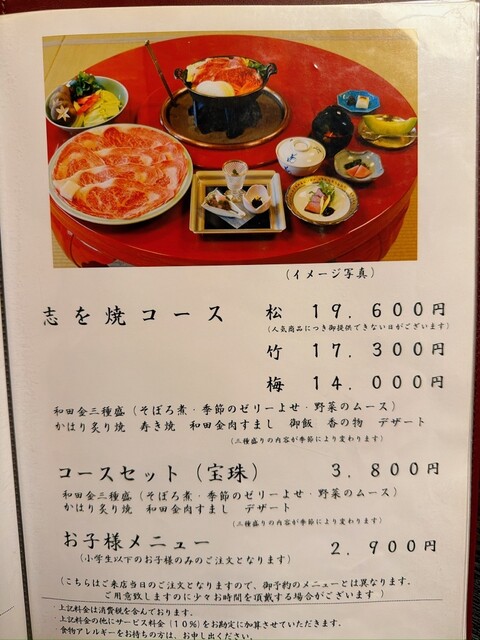 (イメージ写真)
志を焼コース 松 19.600円
(人気商品につき御提供できない日がございます)
竹 17.300円
梅 14.000円
和田金三種盛(そぼろ煮・季節のゼリーよせ・野菜のムース)
かはり炙り焼 寿き焼 和田金肉すまし 御飯 香の物 デザート
(三種盛りの内容が季節により変わります)
コースセット(宝珠) 3.800円
和田金三種盛(そぼろ煮・季節のゼリーよせ・野菜のムース)
かはり炙り焼 和田金肉すまし デザート
(三種盛りの内容が季節により変わります)
お子様メニュー 2.900円
(小学生以下のお子様のみのご注文となります)
(こちらはご来店当日のご注文となりますので、御予約のメニューとは異なります。
ご用意致しますのに少々お時間を頂戴する場合がございます)
・上記料金は消費税を含んでおります。
・上記料金の他にサービス料金(10%)をお勘定に加算させていただきます。
・食物アレルギーをお持ちの方は、お申し出ください。